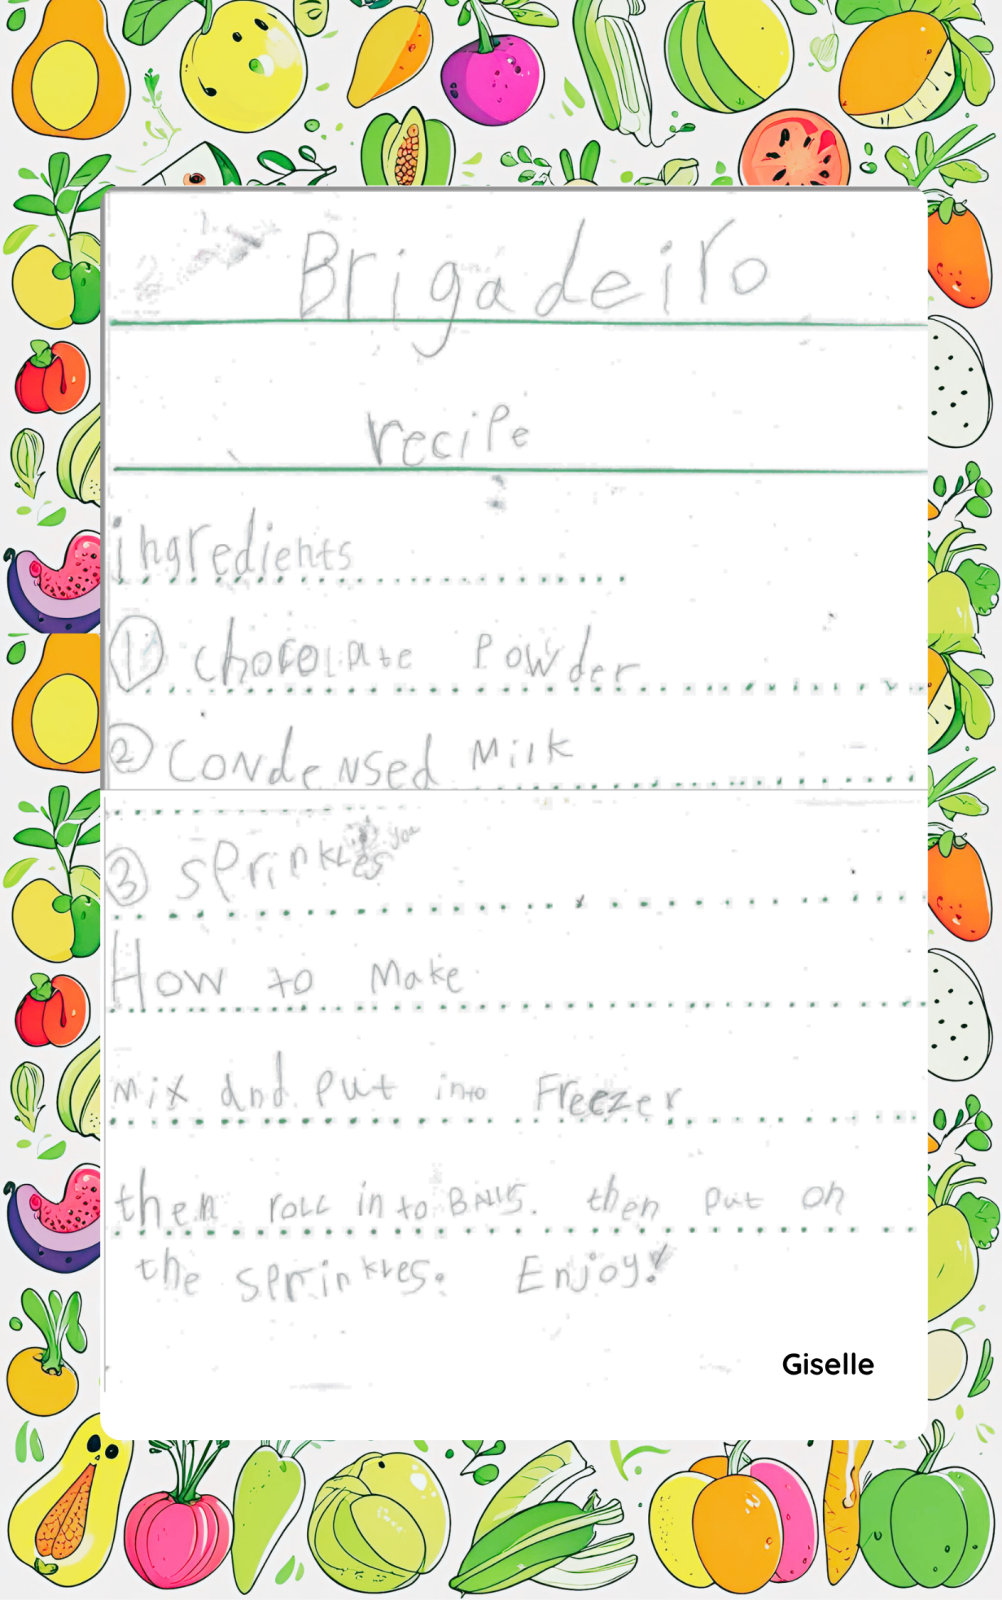 Brigadeiro
recipe
ingredients
① chocolate Powder
② Condensed Milk
③ sprinkles you
How to Make
mix and put into Freezer
then roll into Balls. then put on
the sprinkles. Enjoy!
Giselle